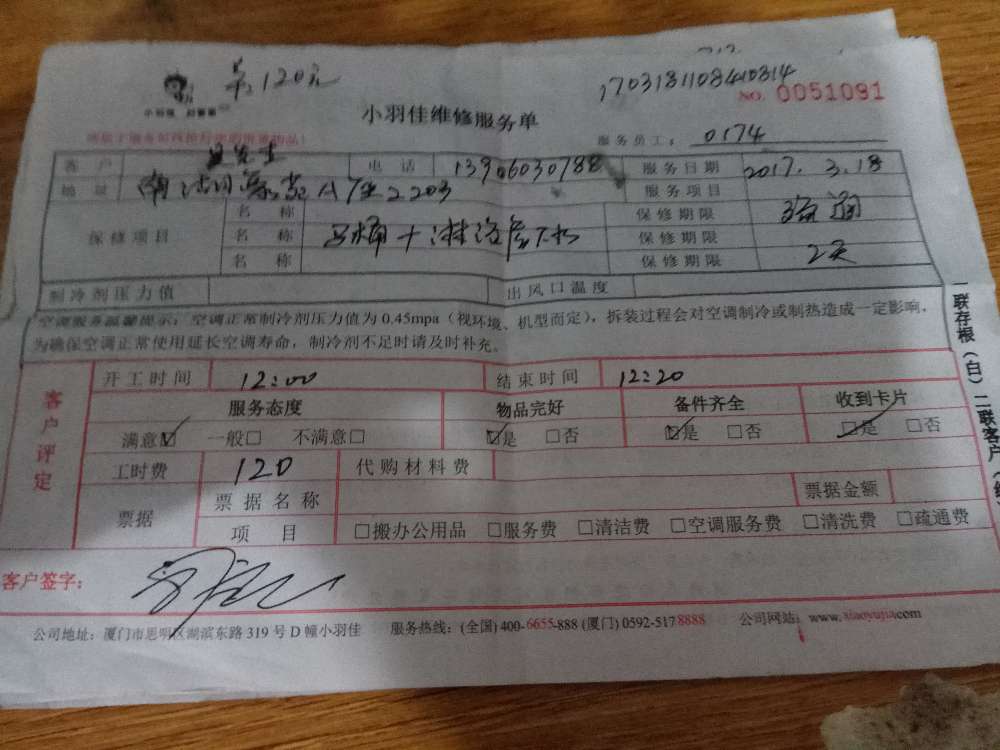 120元
1703181108410814
NO. 0051091
小羽佳维修服务单
服务员工： 0174
客户 先生 电话 13906030788 服务日期 2017.3.18
地址 A座2203 服务项目 疏通
保修项目 名称 保修期限
名称 马桶+淋浴房下水 保修期限
名称 保修期限 2天
制冷剂压力值 出风口温度
空调服务温馨提示：空调正常制冷剂压力值为0.45mpa（视环境、机型而定），拆装过程会对空调制冷或制热造成一定影响，
为确保空调正常使用延长空调寿命，制冷剂不足时请及时补充。
一联存根（白）二联客户
客户评定
开工时间 12:00 结束时间 12:20
服务态度 物品完好 备件齐全 收到卡片
满意☑ 一般□ 不满意□ ☑是 □否 ☑是 □否 ☑是 □否
工时费 120 代购材料费
票据 票据名称 票据金额
项目 □搬办公用品 □服务费 □清洁费 □空调服务费 □清洗费 □疏通费
客户签字：
公司地址：厦门市思明区湖滨东路319号D幢小羽佳 服务热线：(全国)400-6655-888 (厦门)0592-5178888 公司网站：www.xiaoyujia.com